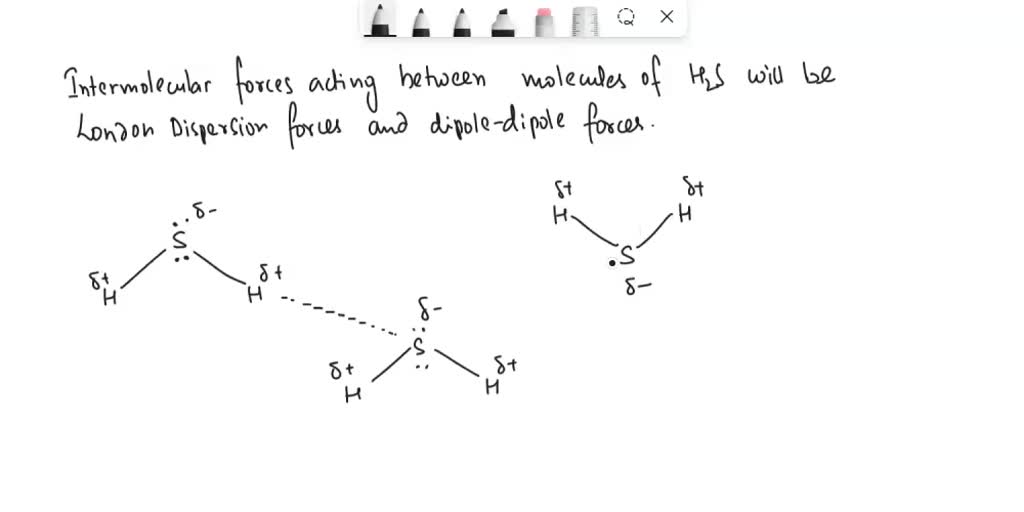 Intermolecular forces acting between molecules of H₂S will be
London Dispersion forces and dipole-dipole forces.
δ+ δ+
H H
δ-
S
S
δ-
δ+
H
δ+
H
δ-
S
δ+
H
δ+
H